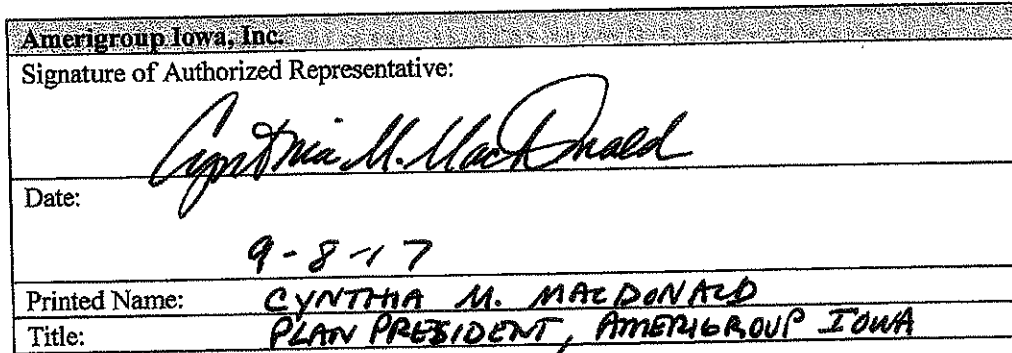 Amerigroup Iowa, Inc.
Signature of Authorized Representative:
Cynthia M. MacDonald
Date:
9-8-17
Printed Name: CYNTHIA M. MACDONALD
Title: PLAN PRESIDENT, AMERIGROUP IOWA